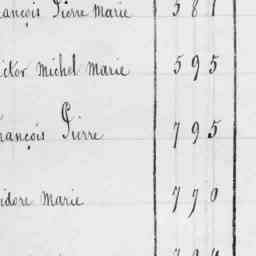 François Pierre Marie 581
Victor Michel Marie 595
François Pierre 795
Isidore Marie 770